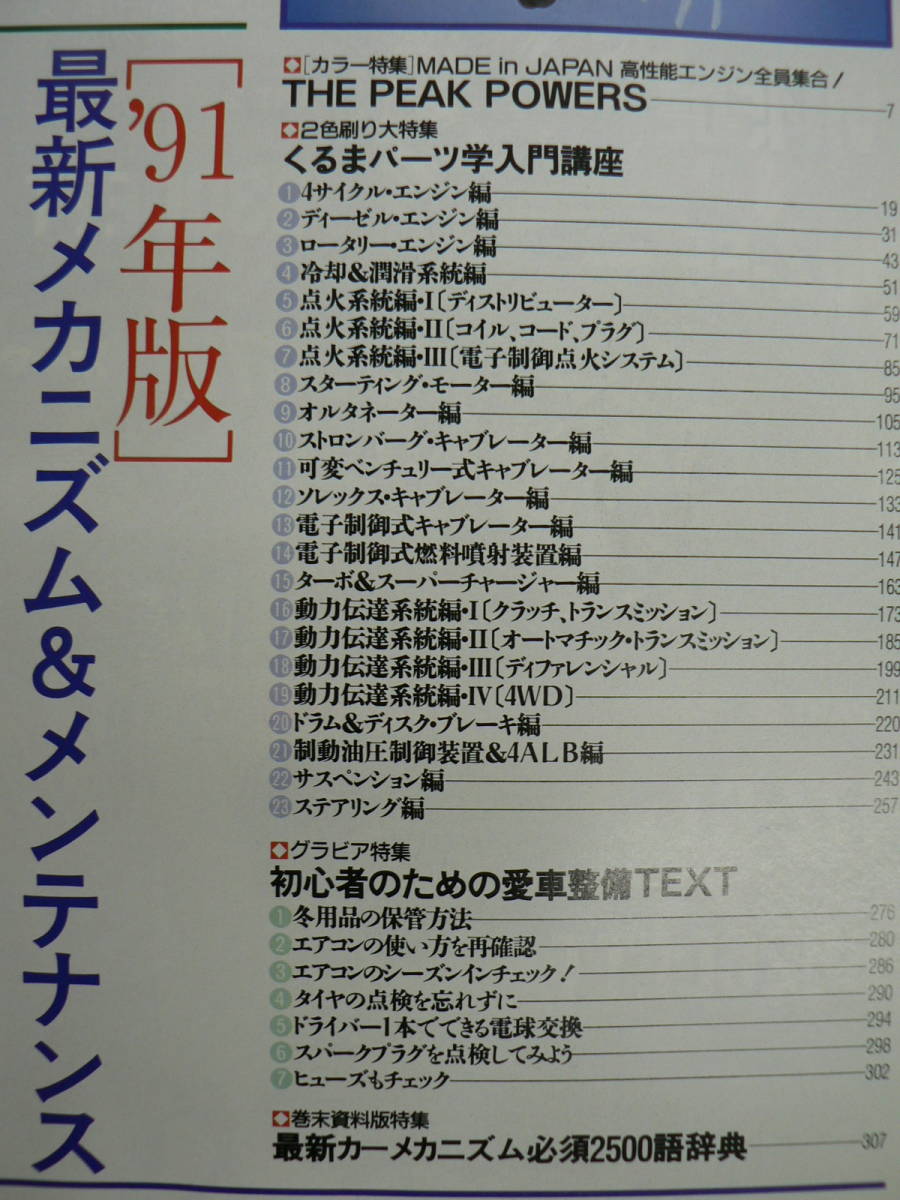 ['91年版]
最新メカニズム&メンテナンス
[カラー特集]MADE in JAPAN 高性能エンジン全員集合!
THE PEAK POWERS 7
2色刷り大特集
くるまパーツ学入門講座
①4サイクル・エンジン編 19
②ディーゼル・エンジン編 31
③ロータリー・エンジン編 43
④冷却&潤滑系統編 51
⑤点火系統編・I〔ディストリビューター〕 59
⑥点火系統編・II〔コイル、コード、プラグ〕 71
⑦点火系統編・III〔電子制御点火システム〕 85
⑧スターティング・モーター編 95
⑨オルタネーター編 105
⑩ストロンバーグ・キャブレーター編 113
⑪可変ベンチュリー式キャブレーター編 125
⑫ソレックス・キャブレーター編 133
⑬電子制御式キャブレーター編 141
⑭電子制御式燃料噴射装置編 147
⑮ターボ&スーパーチャージャー編 163
⑯動力伝達系統編・I〔クラッチ、トランスミッション〕 173
⑰動力伝達系統編・II〔オートマチック・トランスミッション〕 185
⑱動力伝達系統編・III〔ディファレンシャル〕 199
⑲動力伝達系統編・IV〔4WD〕 211
⑳ドラム&ディスク・ブレーキ編 220
㉑制動油圧制御装置&4ALB編 231
㉒サスペンション編 243
㉓ステアリング編 257
グラビア特集
初心者のための愛車整備TEXT
①冬用品の保管方法 276
②エアコンの使い方を再確認 280
③エアコンのシーズンインチェック! 286
④タイヤの点検を忘れずに 290
⑤ドライバー1本でできる電球交換 294
⑥スパークプラグを点検してみよう 298
⑦ヒューズもチェック 302
巻末資料版特集
最新カーメカニズム必須2500語辞典 307